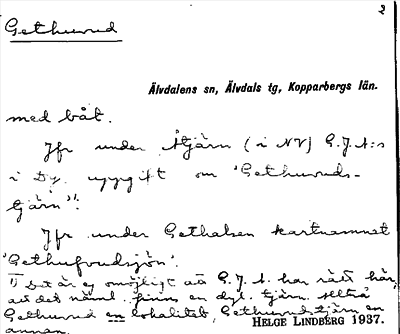 2
Gethuvud
Älvdalens sn, Älvdals tg, Kopparbergs län.
med båt.
Jfr under Åtjärn (i NV) G.J.A:s
i Dy. uppgift om "Gethuvuds-
tjärn"¹⁾.
Jfr under Gethalsen kartnamnet
"Gethufvudsjön".
1) Det är ej omöjligt att G.J.A. har rätt här,
att det näml. finns en dyl. tjärn. Alltså
Gethuvud en lokalitet, Gethuvudstjärn en
annan.
HELGE LINDBERG 1937.